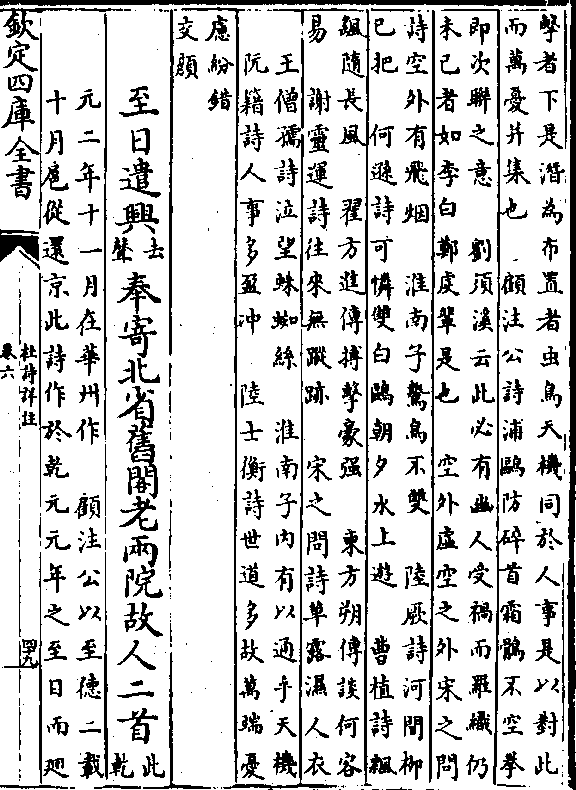 擊者下是潛為布置者虫鳥天機同於人事是以對此
而萬憂并集也　顧注公詩浦鷗防碎首霜鶻不空拳
即次聯之意　劉須溪云此必有幽人受禍而羅織仍
未已者如李白鄭虔輩是也　空外虛空之外宋之問
詩空外有飛烟　淮南子鷙鳥不雙　陸厥詩河間柳
已把　何遜詩可憐雙白鷗朝夕水上遊　曹植詩飄
飖隨長風　翟方進傳搏擊豪强　東方朔傳談何容
易　謝靈運詩往來無蹤跡　宋之問詩草露濕人衣
王僧孺詩泣望蛛蜘絲　淮南子内有以通乎天機
阮籍詩人事多盈冲　陸士衡詩世道多故萬端憂
慮紛錯
交顧
至日遣興去聲奉寄北省舊閣老兩院故人二首此乾
元二年十一月在華州作　顧注公以至德二載
十月扈從還京此詩作於乾元元年之至日而𢌞
欽定四庫全書
杜詩詳註
卷六
四九